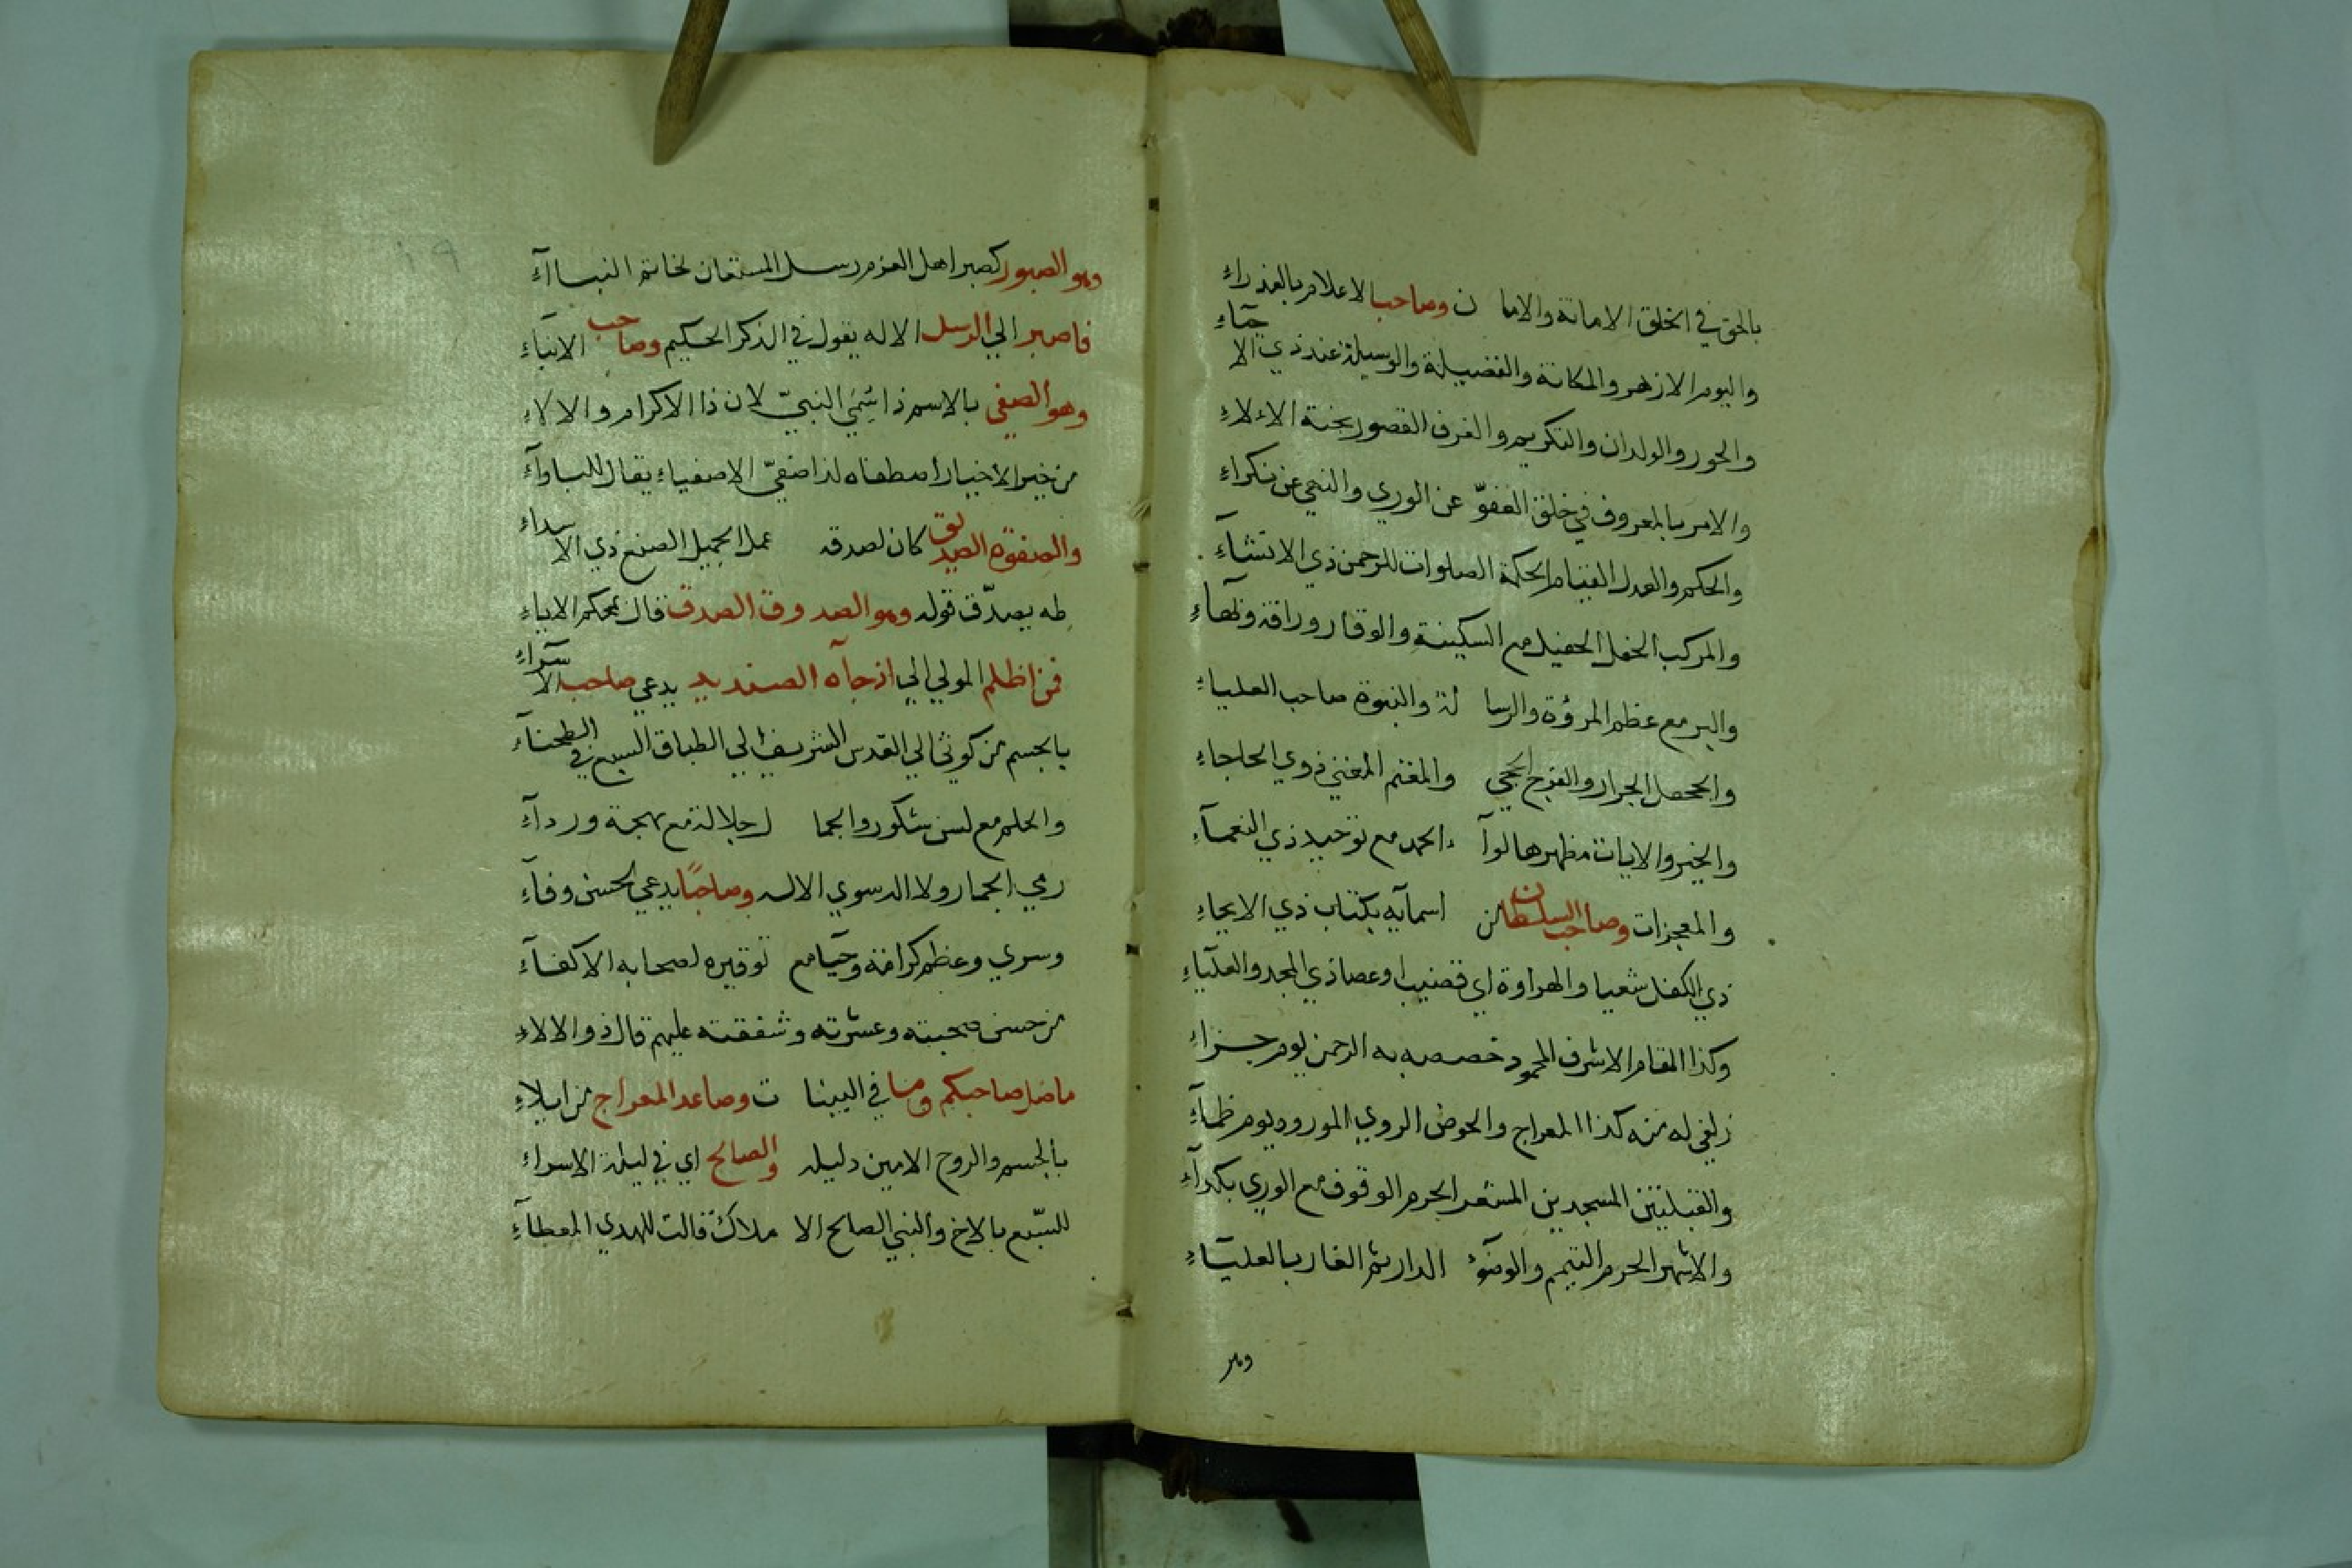 بالحق في الخلق الامانة والاما ن وصاحب الاعلام بالغدراء
واليوم الازهر والمكانة والفضيلة والوسيلة عند ذي الاحبآء
والحور والولدان والتكريم والغرف القصور بجنة الاءلاء
والامر بالمعروف في خلق العفوّ عن الوري والنهي عن نكراء
والحكم والعدل القيام الحكمة الصلوات للرحمن ذي الانشآء
والمركب الحفل الحفيل مع السكينة والوقار ورافة وبهآء
والبر مع عظم المرؤة والرسا لة والنبوة صاحب العلياء
والجحفل الجرار والفرج الحجي والمغنم المغني ذوي الحاجاء
والخير والايات مظهرها لوآ ء الحمد مع توحيد ذي النعمآء
والمعجزات وصاحب السلطان من اسمآيه بكتاب ذي الايحاء
ذي الكفل شعيا والهراوة اي قضيب او عصا ذي المجد والعليآء
وكذا المقام الاشرف المحمود خصصه به الرحمن يوم جزاء
زلفي له منه كذا المعراج والحوض الروي المورود يوم ظمآء
والقبلتين المسجدين المشعر الحرم الوقوف مع الوري بكدآء
والاشهر الحرم التيمم والوضوء الدار ثم الغار بالعليآء
وهو
وهو الصبور كصبر اهل العزم رسل المستعان لخاتم النبآء
فاصبر الي الرسل الاله يقول في الذكر الحكيم وصاحب الانبآء
وهو الصفي بالاسم ذا سُمّي النبيّ لان ذا الاكرام والالاء
من خير الاخيار اصطفاه لذا صفيّ الاصفياء يقال للباوآء
والصفوة الصديق كان لصدقه عمل الجميل الصنع ذي الاسداء
طه يصدّق قوله وهو الصدوق الصدق قال بمحكم الاياء
فمن اظلم المولي الي اذ جآه الصنديد يدعي صاحب الاسرآء
بالجسم من كوثي الي القدس الشريف الي الطباق السبع في البطحآء
والحلم مع لسن شكور والجما ل جلالة مع بهجة وردآء
رمي الجمار ولا الدسوي الاله وصاحبًا يدعي لحسن وفآء
وسري وعظم كرامة وحيآ مع توقيره لصحابه الاكفآء
من حسن صحبته وعشرته وشفقته عليهم قال ذو الالاء
ما ضل صاحبكم وما في البينا ت وصاعد المعراج من ايلاء
بالجسم والروح الامين دليله والصالح اي في ليلة الاسراء
للسبّع بالاخ والنبي الصالح الا ملاك قالت للهدي المعطآء